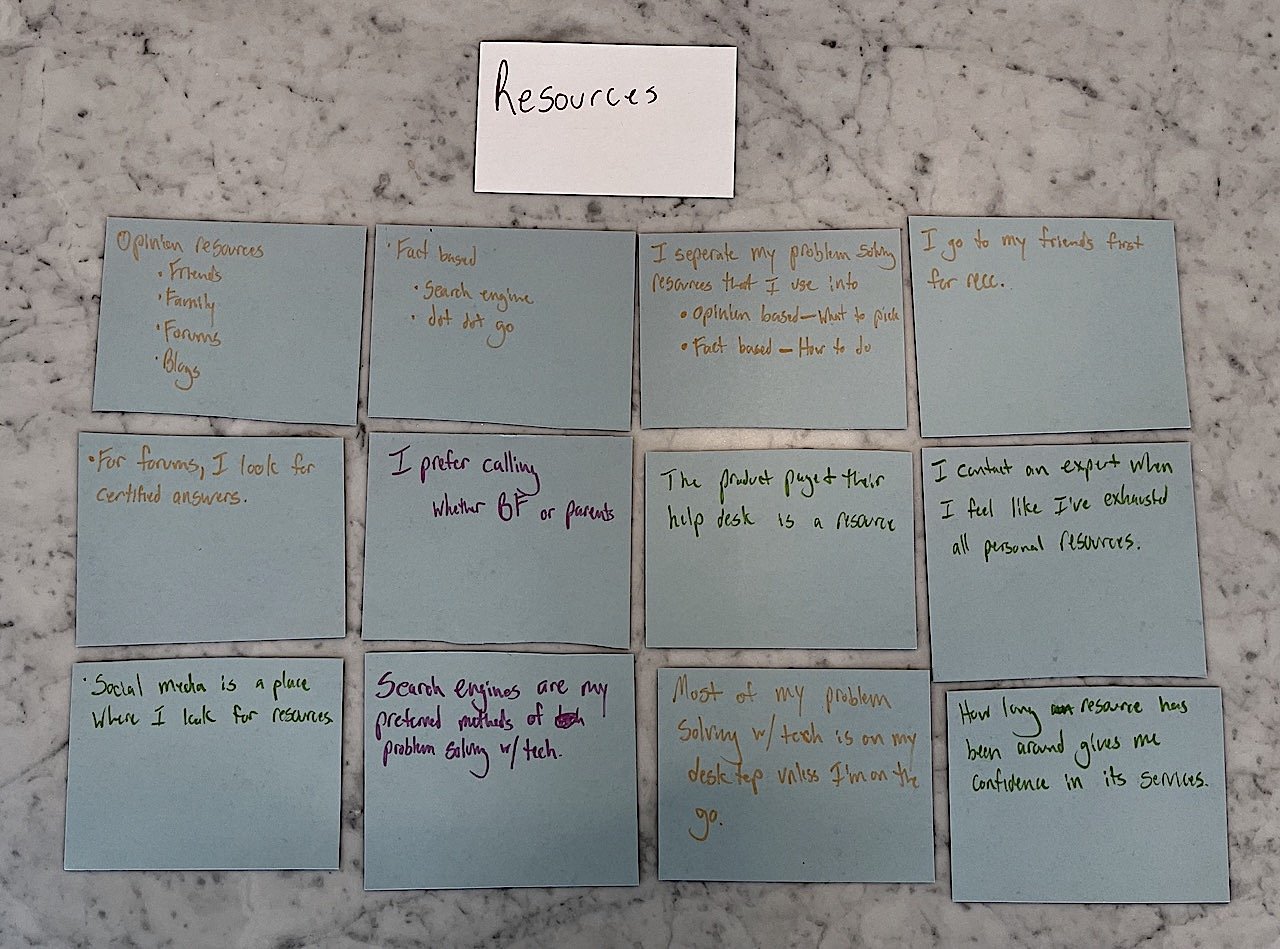 Resources
Opinion resources
• Friends
• Family
• Forums
• Blogs
• Fact based
• Search engine
• dot dot go
I seperate my problem solving
resources that I use into
• opinion based — What to pick
• Fact based — How to do
I go to my friends first
for recc.
• For forums, I look for
certified answers.
I prefer calling
whether BF or parents
The product page + their
help desk is a resource
I contact an expert when
I feel like I've exhausted
all personal resources.
• Social media is a place
where I look for resources
Search engines are my
preferred methods of
problem solving w/ tech.
Most of my problem
solving w/ tech is on my
desktop unless I'm on the
go.
How long resource has
been around gives me
confidence in its services.